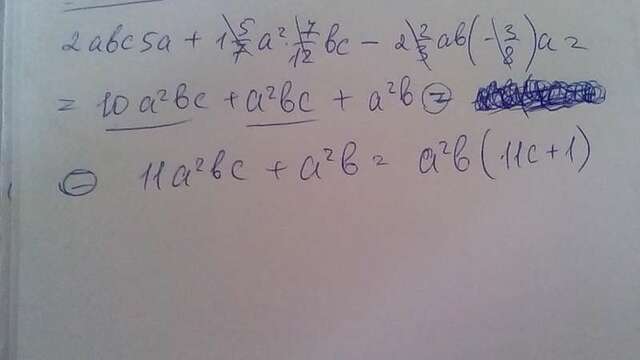 2abc5a + 1 5/7 a² · 7/12 bc − 2 2/3 ab(−3/8)a =
= 10a²bc + a²bc + a²b =
= 11a²bc + a²b = a²b(11c+1)